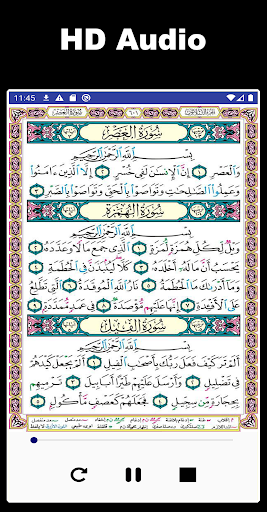 HD Audio
11:45
سُورَةُ الْعَصْرِ
٦٠١
سُورَةُ العَصْرِ
بِسْمِ اللَّهِ الرَّحْمَٰنِ الرَّحِيمِ
وَالْعَصْرِ ١ إِنَّ الْإِنسَانَ لَفِي خُسْرٍ ٢ إِلَّا الَّذِينَ ءَامَنُوا
وَعَمِلُوا الصَّالِحَاتِ وَتَوَاصَوْا بِالْحَقِّ وَتَوَاصَوْا بِالصَّبْرِ ٣
سُورَةُ الْهُمَزَةِ
بِسْمِ اللَّهِ الرَّحْمَٰنِ الرَّحِيمِ
وَيْلٌ لِّكُلِّ هُمَزَةٍ لُّمَزَةٍ ١ الَّذِي جَمَعَ مَالًا وَعَدَّدَهُ ٢
يَحْسَبُ أَنَّ مَالَهُ أَخْلَدَهُ ٣ كَلَّا لَيُنبَذَنَّ فِي الْحُطَمَةِ ٤
وَمَا أَدْرَاكَ مَا الْحُطَمَةُ ٥ نَارُ اللَّهِ الْمُوقَدَةُ ٦ الَّتِي تَطَّلِعُ
عَلَى الْأَفْئِدَةِ ٧ إِنَّهَا عَلَيْهِم مُّؤْصَدَةٌ ٨ فِي عَمَدٍ مُّمَدَّدَةٍ ٩
سُورَةُ الْفِيلِ
بِسْمِ اللَّهِ الرَّحْمَٰنِ الرَّحِيمِ
أَلَمْ تَرَ كَيْفَ فَعَلَ رَبُّكَ بِأَصْحَابِ الْفِيلِ ١ أَلَمْ يَجْعَلْ كَيْدَهُمْ
فِي تَضْلِيلٍ ٢ وَأَرْسَلَ عَلَيْهِمْ طَيْرًا أَبَابِيلَ ٣ تَرْمِيهِم
بِحِجَارَةٍ مِّن سِجِّيلٍ ٤ فَجَعَلَهُمْ كَعَصْفٍ مَّأْكُولٍ ٥